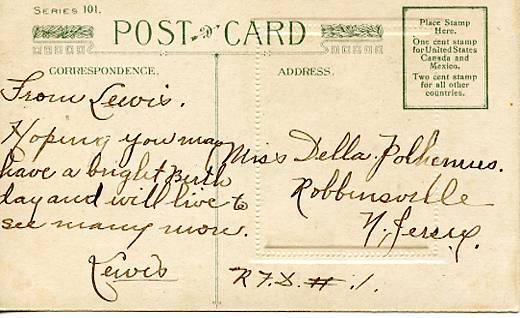 SERIES 101.
POST CARD
CORRESPONDENCE.
From Lewis.
Hoping you may
have a bright Birth
day and will live to
see many more.
Lewis
ADDRESS.
Place Stamp
Here.
One cent stamp
for United States
Canada and
Mexico.
Two cent stamp
for all other
countries.
Miss Della Polhemus.
Robbinsville
N. Jersey.
R.F.D. # 1.